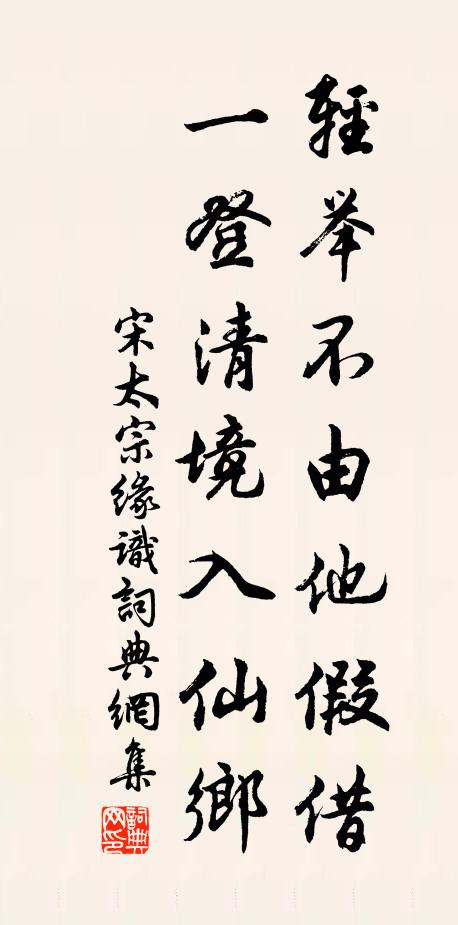 輕举不由他假借
一登清境入仙鄉
宋太宗缘識詞典網集
詞典网印